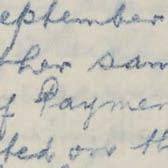 eptember
ther sam
f Paymen
ted on th